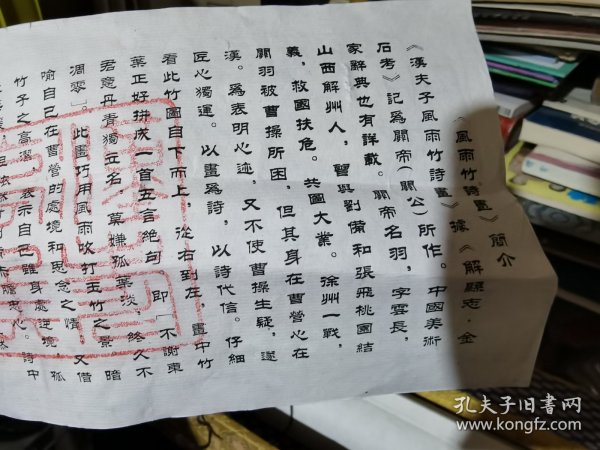 《風雨竹詩畫》簡介
《漢夫子風雨竹詩畫》據《解縣志·金
石考》記爲關帝(關公)所作。中國美術
家辭典也有詳載。關帝名羽，字雲長，
山西解州人，曾與劉備和張飛桃園結
義，救國扶危。共圖大業。徐州一戰，
關羽被曹操所困，但其身在曹營心在
漢。爲表明心迹，又不使曹操生疑，遂
匠心獨運。以畫爲詩，以詩代信。仔細
看此竹圖自下而上，從右到左，畫中竹
葉正好拼成一首五言絶句，即「不謝東
君意丹青獨立名，葉嫌孤葉淡，終久不
凋零」。此畫巧用風雨吹打玉竹之景暗
喻自己在曹營的處境和思念之情，又借
竹子之高潔，表示自己雖身處逆境，孤
忠心。詩中
孔夫子旧书网
www.kongfz.com